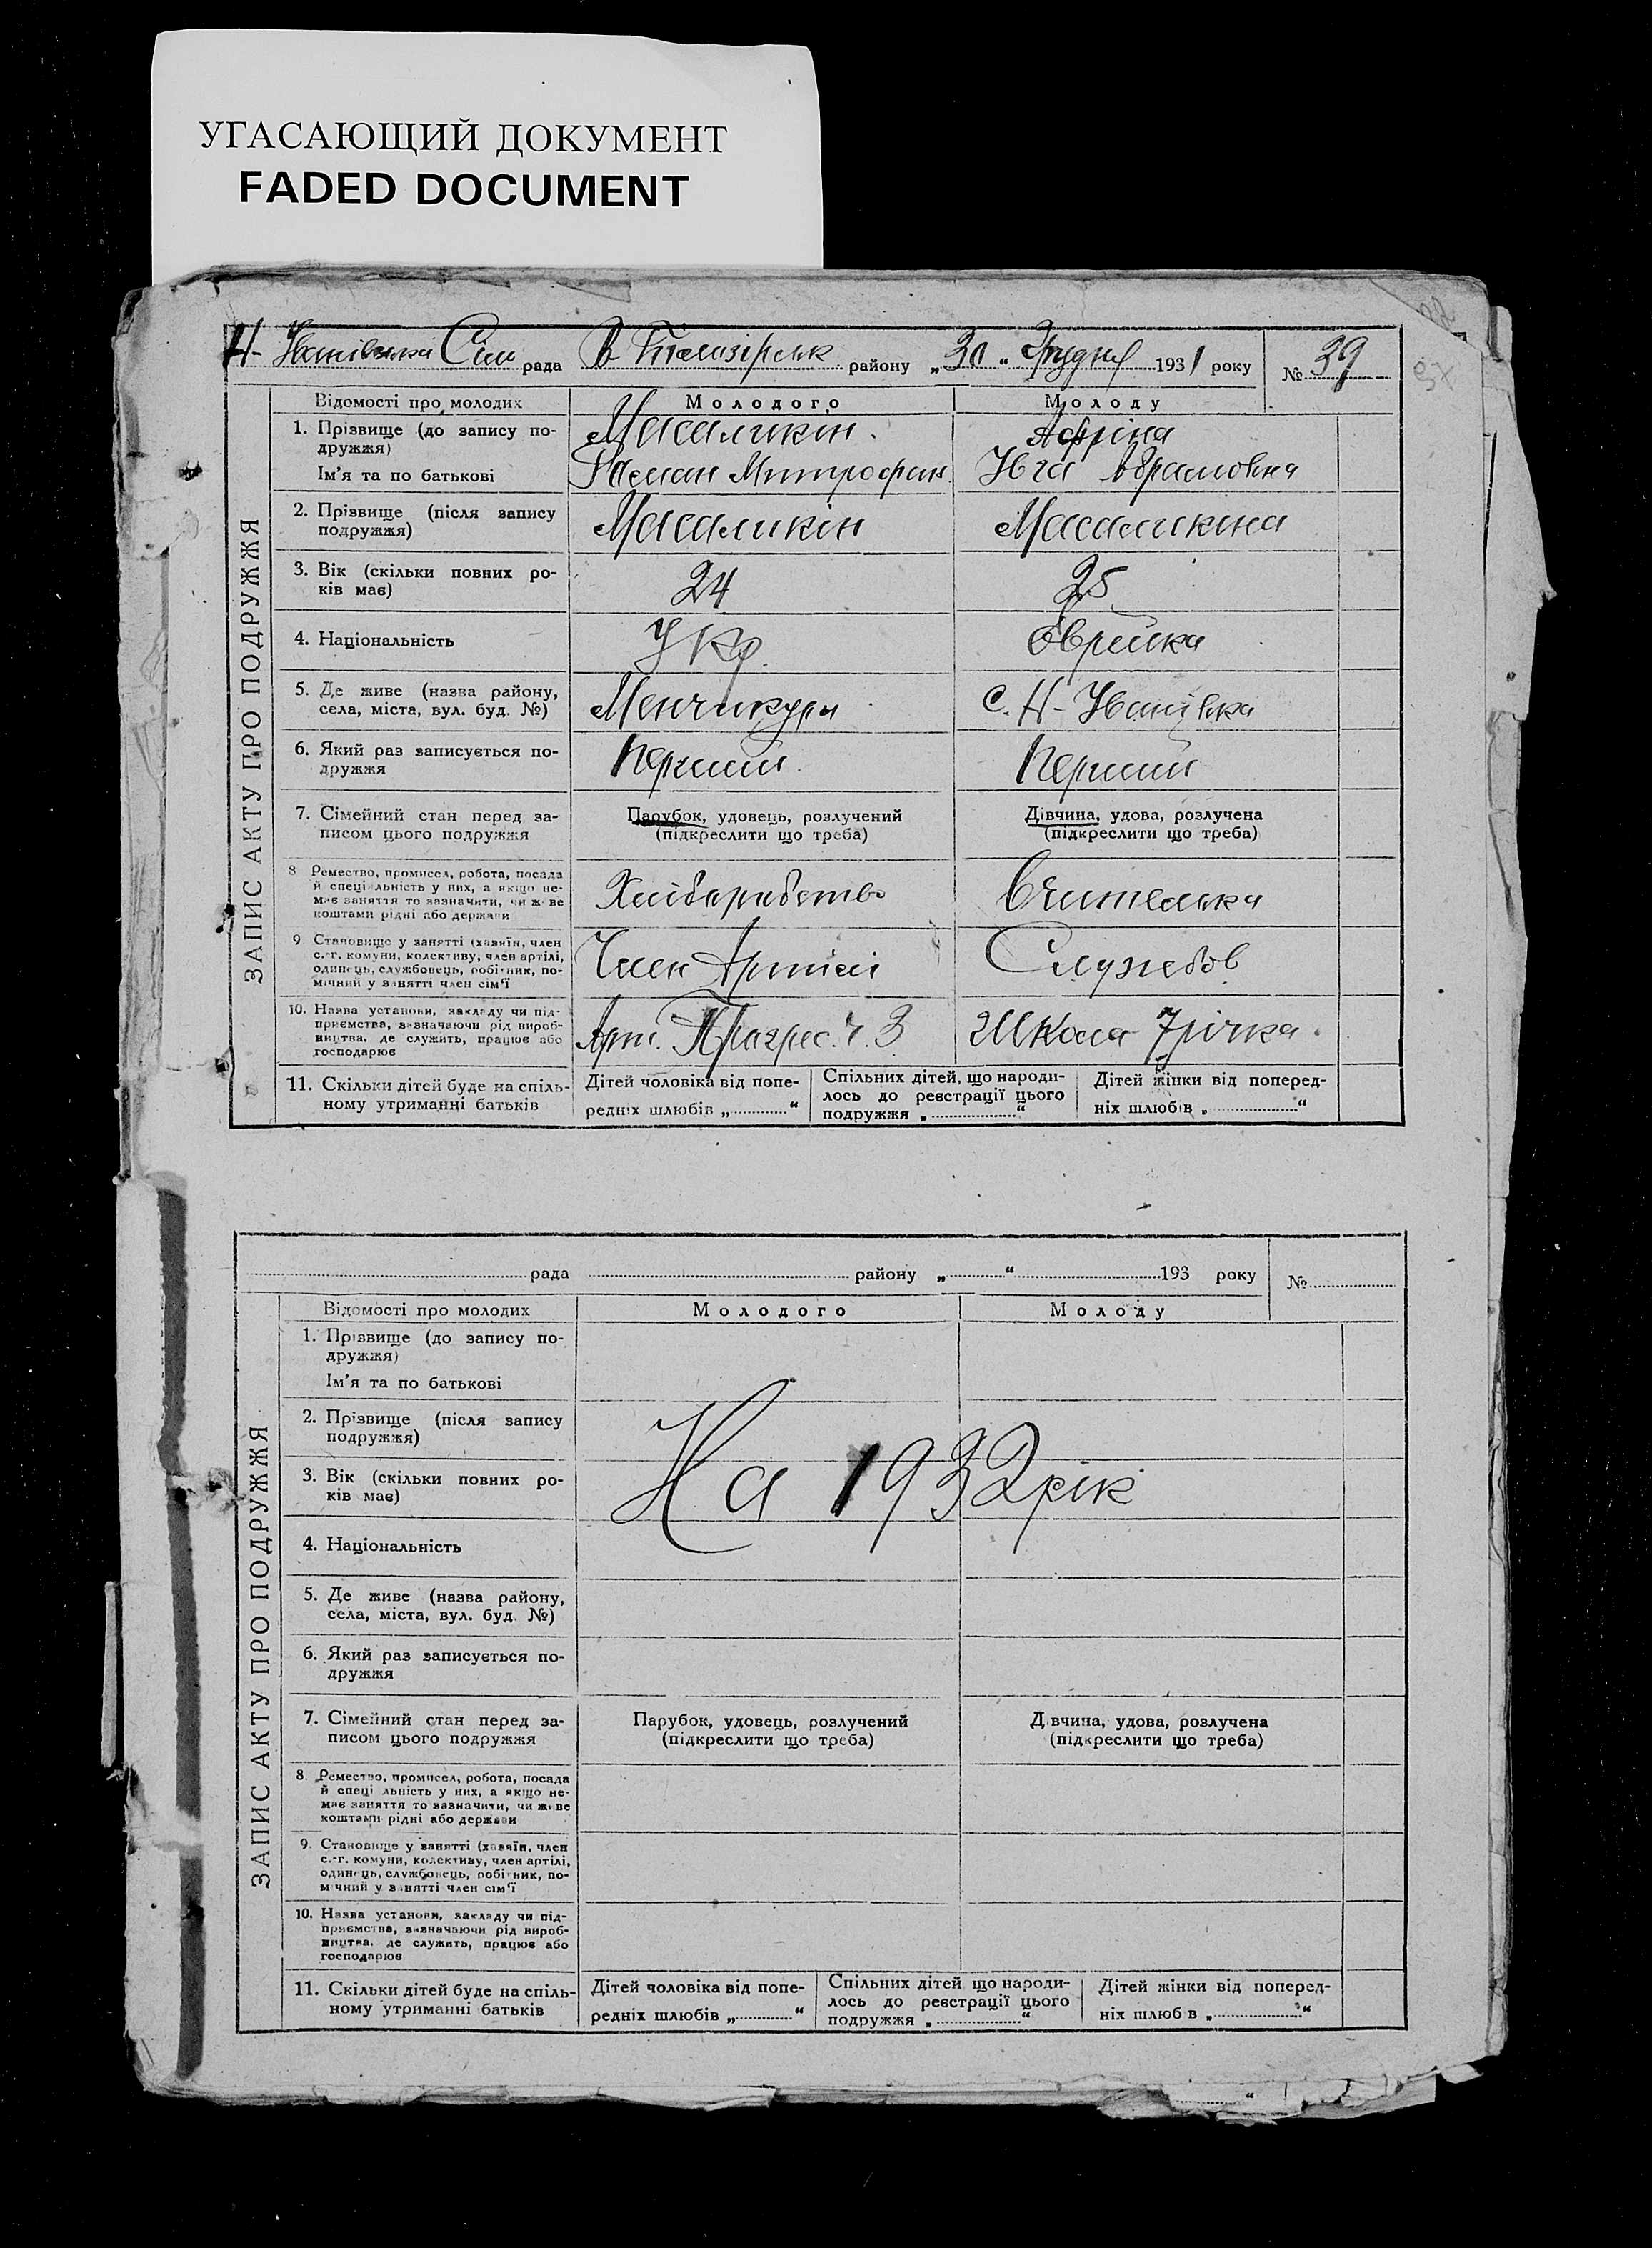 УГАСАЮЩИЙ ДОКУМЕНТ
FADED DOCUMENT
Н-Іванівська Сіль рада В Білозірськ району „30“ Грудня 1931 року № 39
ЗАПИС АКТУ ПРО ПОДРУЖЖЯ
Відомості про молодих Молодого Молоду
1. Прізвище (до запису по-
дружжя) Масаликін. Афріна
Ім'я та по батькові Раман Митрофан. Абрамовна
2. Прізвище (після запису
подружжя) Масаликін Масаликіна
3. Вік (скільки повних ро-
ків має) 24 25
4. Національність Укр. Єврейка
5. Де живе (назва району,
села, міста, вул. буд. №) Менчикури с. Н-Іванівка
6. Який раз записується по-
дружжя Перший Перший
7. Сімейний стан перед за-
писом цього подружжя Парубок, удовець, розлучений Дівчина, удова, розлучена
(підкреслити що треба) (підкреслити що треба)
8 Ремество, промисел, робота, посада
й спеціальність у них, а якщо не-
має заняття то зазначити, чи живе
коштами рідні або держави Хліборобство Вчителька
9 Становище у занятті (хазяїн, член
с.-г. комуни, колективу, член артілі,
одинець, службовець, робітник, по-
мічний у занятті член сім'ї Член Артілі Службов
10. Назва установи, закладу чи під-
приємства, зазначаючи рід вироб-
ництва, де служить, працює або
господарює Арт. Прогрес. ч. 3 Школа 7річка.
11. Скільки дітей буде на спіль-
ному утриманні батьків Дітей чоловіка від попе-
редніх шлюбів „ “ Спільних дітей, що народи-
лось до реєстрації цього
подружжя „ “ Дітей жінки від поперед-
ніх шлюбів „ “
рада району „ “ 193 року №
ЗАПИС АКТУ ПРО ПОДРУЖЖЯ
Відомості про молодих Молодого Молоду
1. Прізвище (до запису по-
дружжя)
Ім'я та по батькові
2. Прізвище (після запису
подружжя)
На 1932 рік
3. Вік (скільки повних ро-
ків має)
4. Національність
5. Де живе (назва району,
села, міста, вул. буд. №)
6. Який раз записується по-
дружжя
7. Сімейний стан перед за-
писом цього подружжя Парубок, удовець, розлучений Дівчина, удова, розлучена
(підкреслити що треба) (підкреслити що треба)
8. Ремество, промисел, робота, посада
й спеціальність у них, а якщо не-
має заняття то зазначити, чи живе
коштами рідні або держави
9. Становище у занятті (хазяїн, член
с.-г. комуни, колективу, член артілі,
одинець, службовець, робітник, по-
мічний у занятті член сім'ї
10. Назва установи, закладу чи під-
приємства, зазначаючи рід вироб-
ництва, де служить, працює або
господарює
11. Скільки дітей буде на спіль-
ному утриманні батьків Дітей чоловіка від попе-
редніх шлюбів „ “ Спільних дітей, що народи-
лось до реєстрації цього
подружжя „ “ Дітей жінки від поперед-
ніх шлюбів „ “